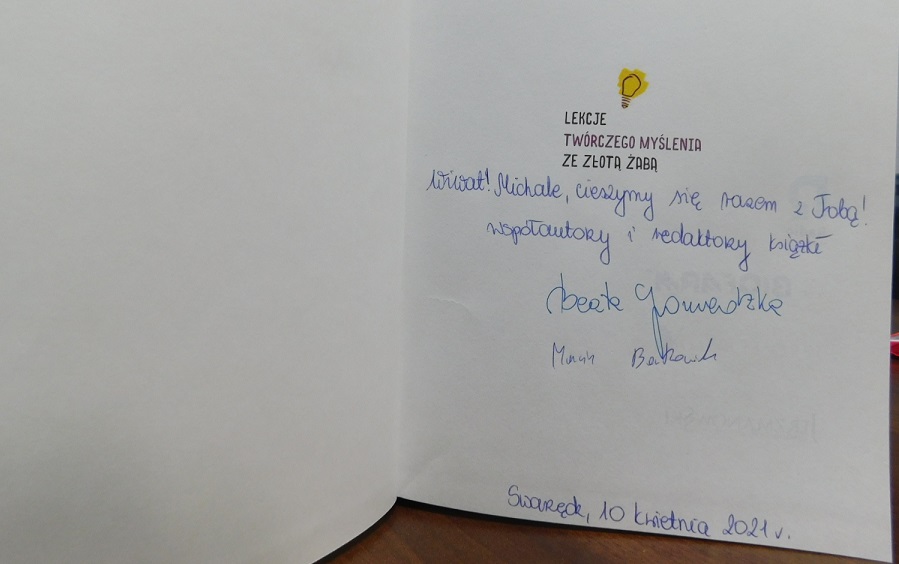 LEKCJE
TWÓRCZEGO MYŚLENIA
ZE ZŁOTĄ ŻABĄ
Wiwat! Michale, cieszymy się razem z Tobą!
współautorzy i redaktorzy książki
Beata
Marcin
Swarzędz, 10 kwietnia 2021 r.